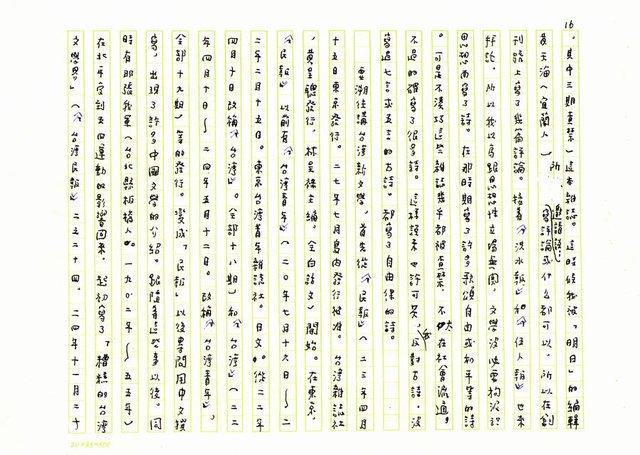 16
。其中三期查禁）這本雜誌。這時候我被「明日」的編輯
黃天海（宜蘭人）所邀請說，寫評論或什么都可以，所以在創
刊號上寫了幾篇評論。接著《淡水報》和《伍人報》也來
拜託，所以我以為跟思想性立場無關，文學
思想而寫了詩。在那時期寫了許多歌頌自由或和平等的詩
。可是不湊巧這些雜誌幾乎都被查禁，不太在社會流通，
不過的確寫了很多詩。這樣說來也許可笑，反對古詩，沒
寫過七言或五言的古詩。都寫了自由律的詩。
要溯往講台灣新文學，首先從《民報》（二三年四月
十五日東京發行。二七年七月島內發行被准。台灣雜誌社
，黃呈聰發行，林呈祿主編。全白話文）開始。在東京，
《民報》以前有《台灣青年》（二〇年七月十六日～二
二年二月十五日。東京台灣青年雜誌社。日文。從二二年
四月十日改稱《台灣》。全部十八期）和《台灣》（二二
年四月十日～二四年五月十日。改稱《台灣青年》，
全部十九期）等的發行。變成「民報」以後專門用中文撰
寫，出現了許多中國文學的介紹。跟隨着這些事以後。同
時有那張我軍（台北縣板橋人。一九〇二年～五五年）
在北平受到五四運動的影響回來。起初寫了「糟糕的台灣
文學界」（《台灣民報》二之二十四。二四年十一月二十
20×25=500